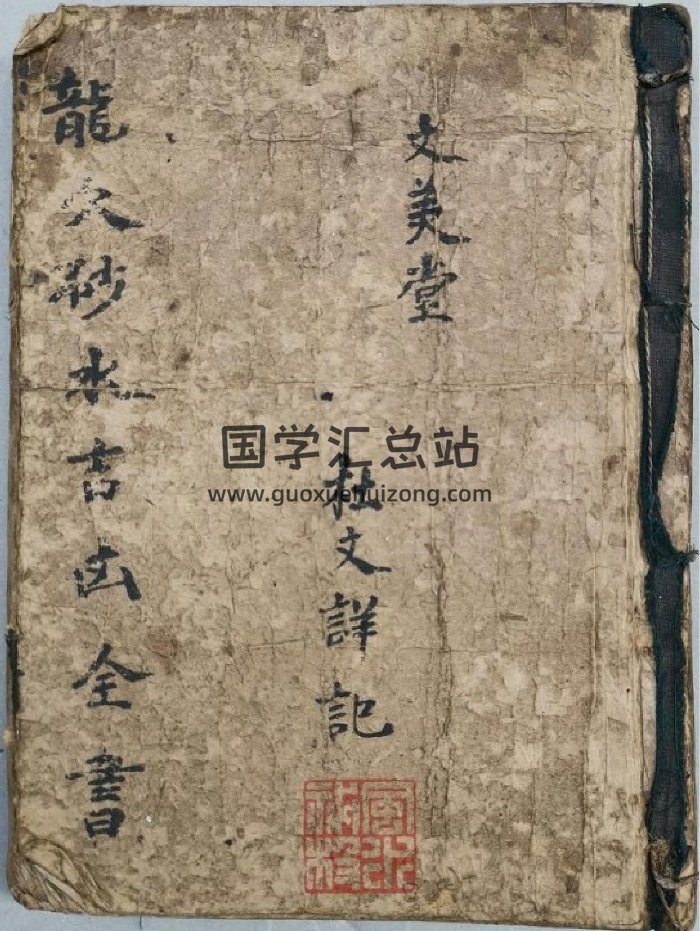 文美堂
杜文詳記
龍穴砂水吉凶全書
国学汇总站
www.guoxuehuizong.com